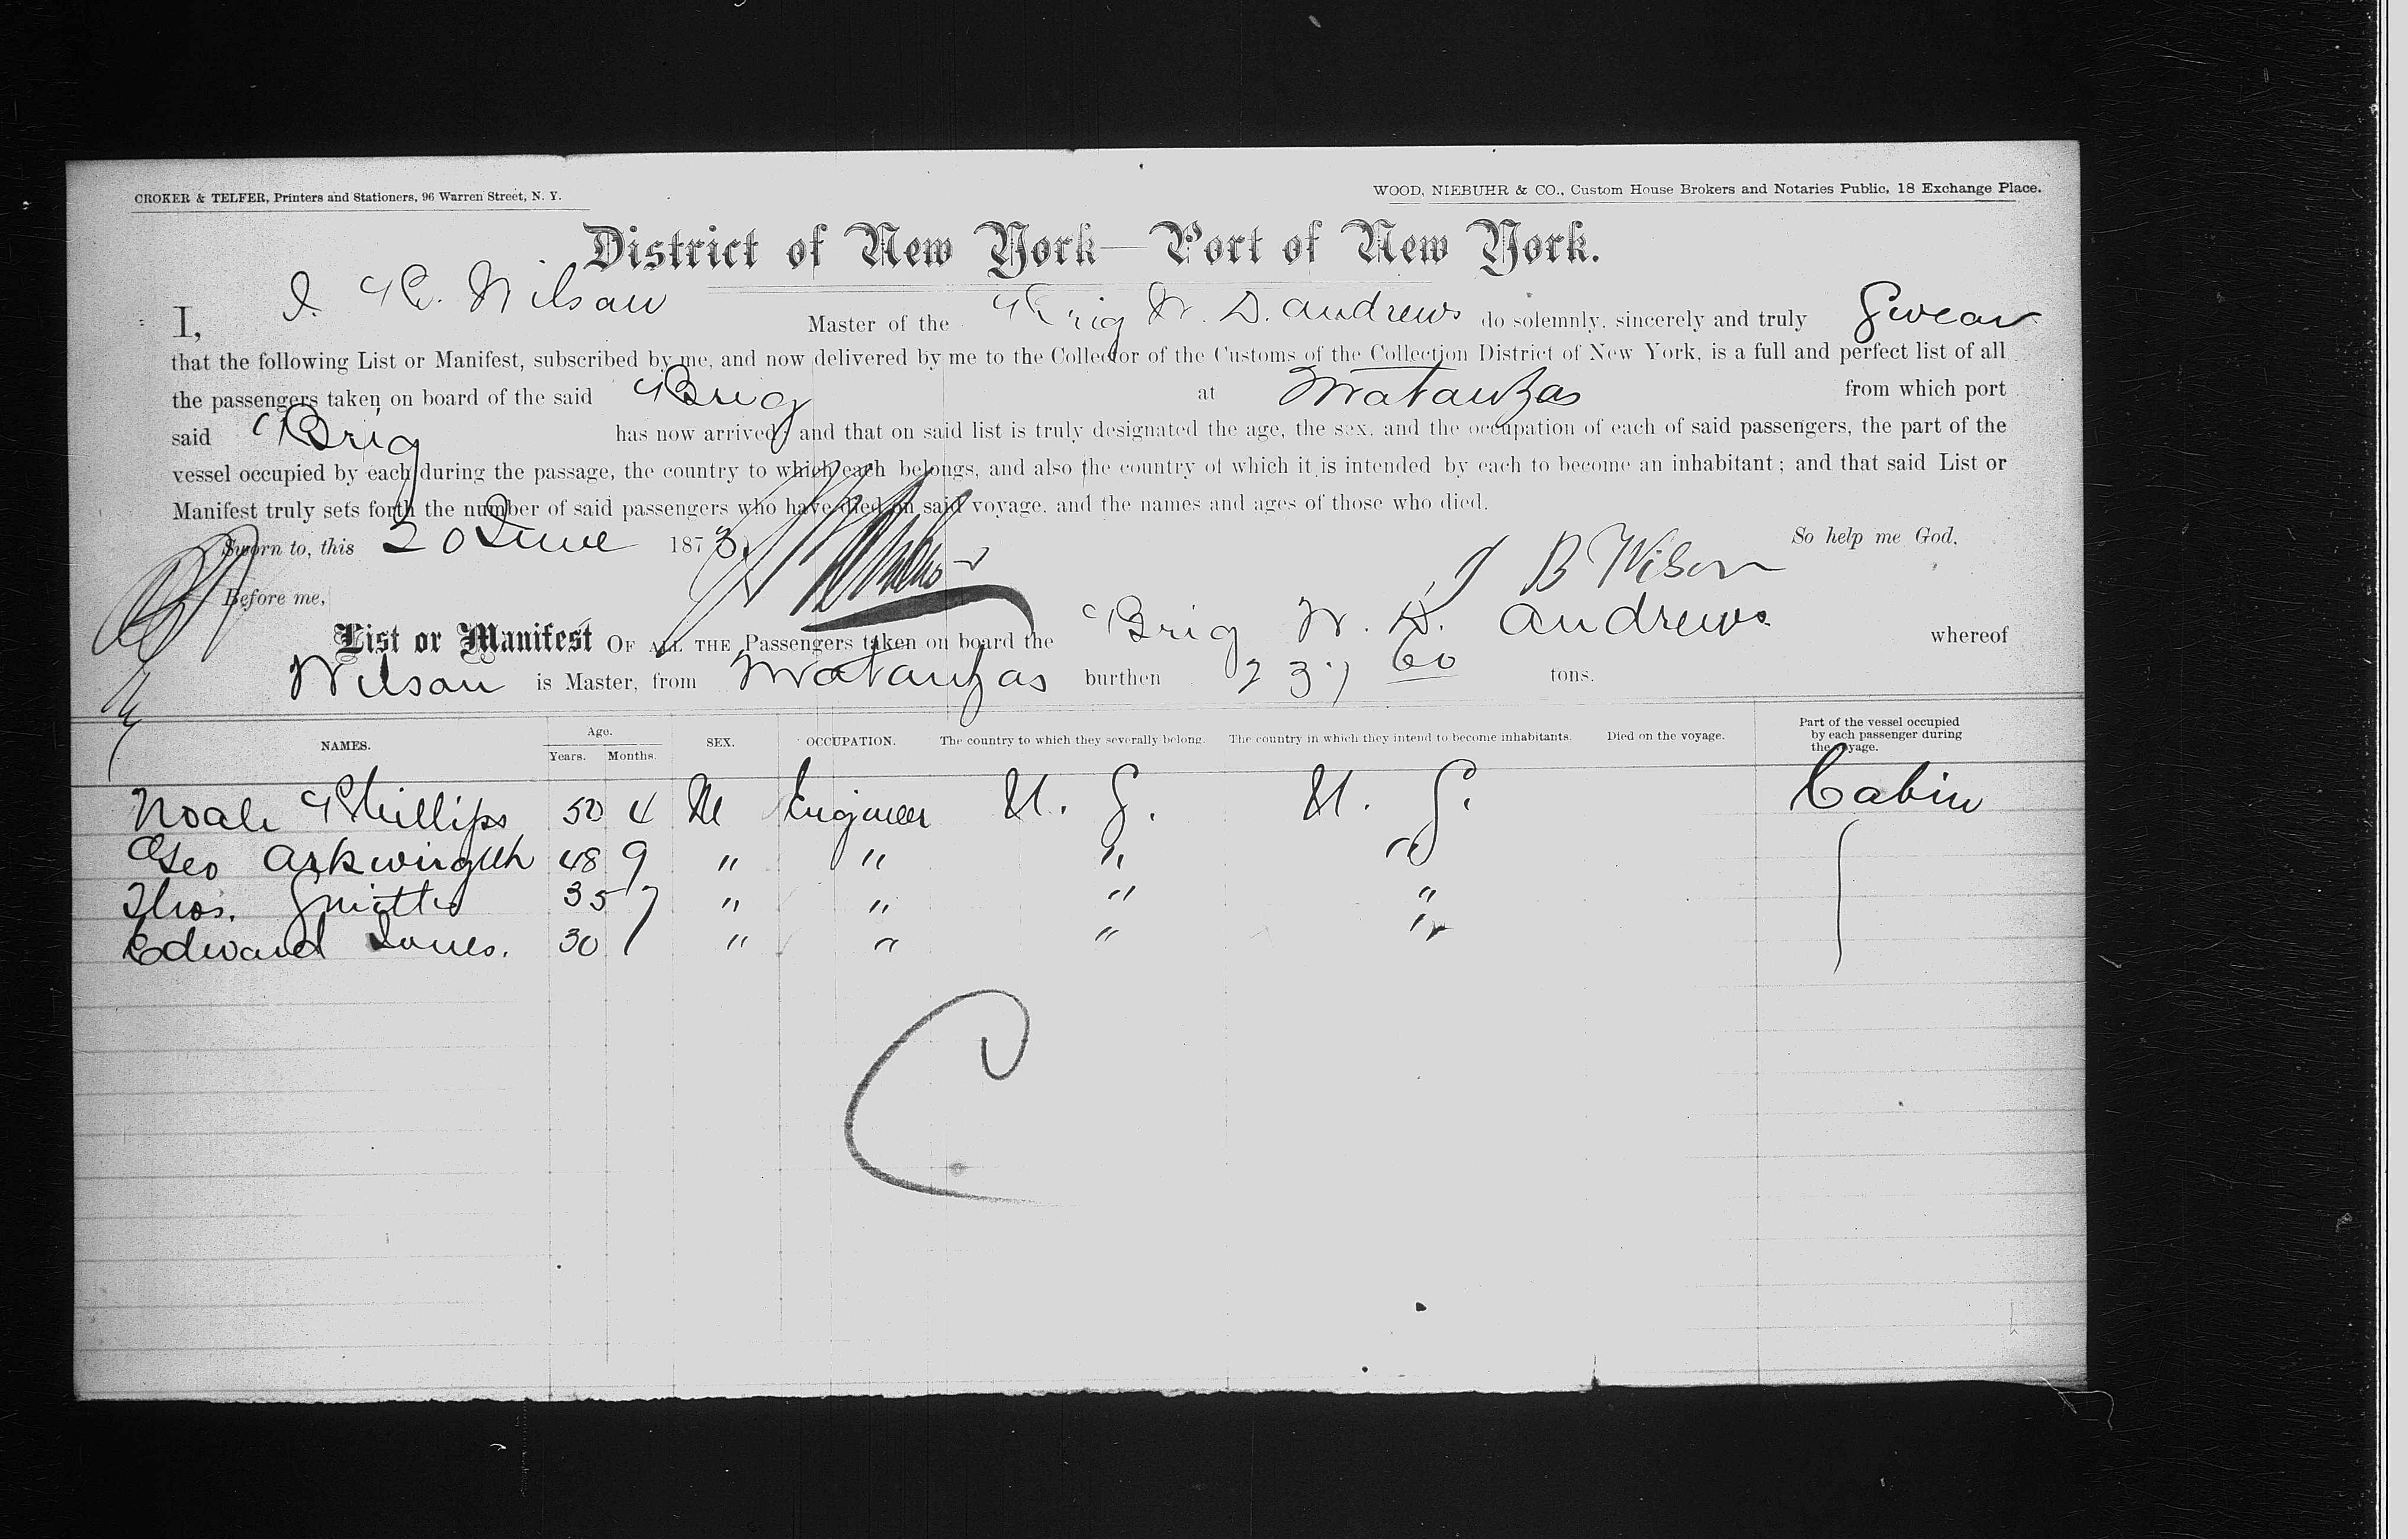 CROKER & TELFER, Printers and Stationers, 96 Warren Street, N. Y.
WOOD, NIEBUHR & CO., Custom House Brokers and Notaries Public, 18 Exchange Place.
District of New York—Port of New York.
I, J. B. Wilson Master of the Brig W. D. Andrews do solemnly, sincerely and truly Swear
that the following List or Manifest, subscribed by me, and now delivered by me to the Collector of the Customs of the Collection District of New York, is a full and perfect list of all
the passengers taken on board of the said Brig at Matanzas from which port
said Brig has now arrived, and that on said list is truly designated the age, the sex, and the occupation of each of said passengers, the part of the
vessel occupied by each during the passage, the country to which each belongs, and also the country of which it is intended by each to become an inhabitant; and that said List or
Manifest truly sets forth the number of said passengers who have died on said voyage, and the names and ages of those who died.
Sworn to, this 20 June 1873. So help me God.
J B Wilson
Before me,
List or Manifest OF ALL THE Passengers taken on board the Brig W. D. Andrews whereof
Wilson is Master, from Matanzas burthen 237 60 tons.
NAMES. Age. Years. Months. SEX. OCCUPATION. The country to which they severally belong. The country in which they intend to become inhabitants. Died on the voyage. Part of the vessel occupied by each passenger during the voyage.
Noah Phillips 50 4 M Engineer U. S. U. S. Cabin
Geo Arkwright 48 9 " " " "
Thos. Smith 35 7 " " " "
Edward Jones. 30 1 " " " "
C